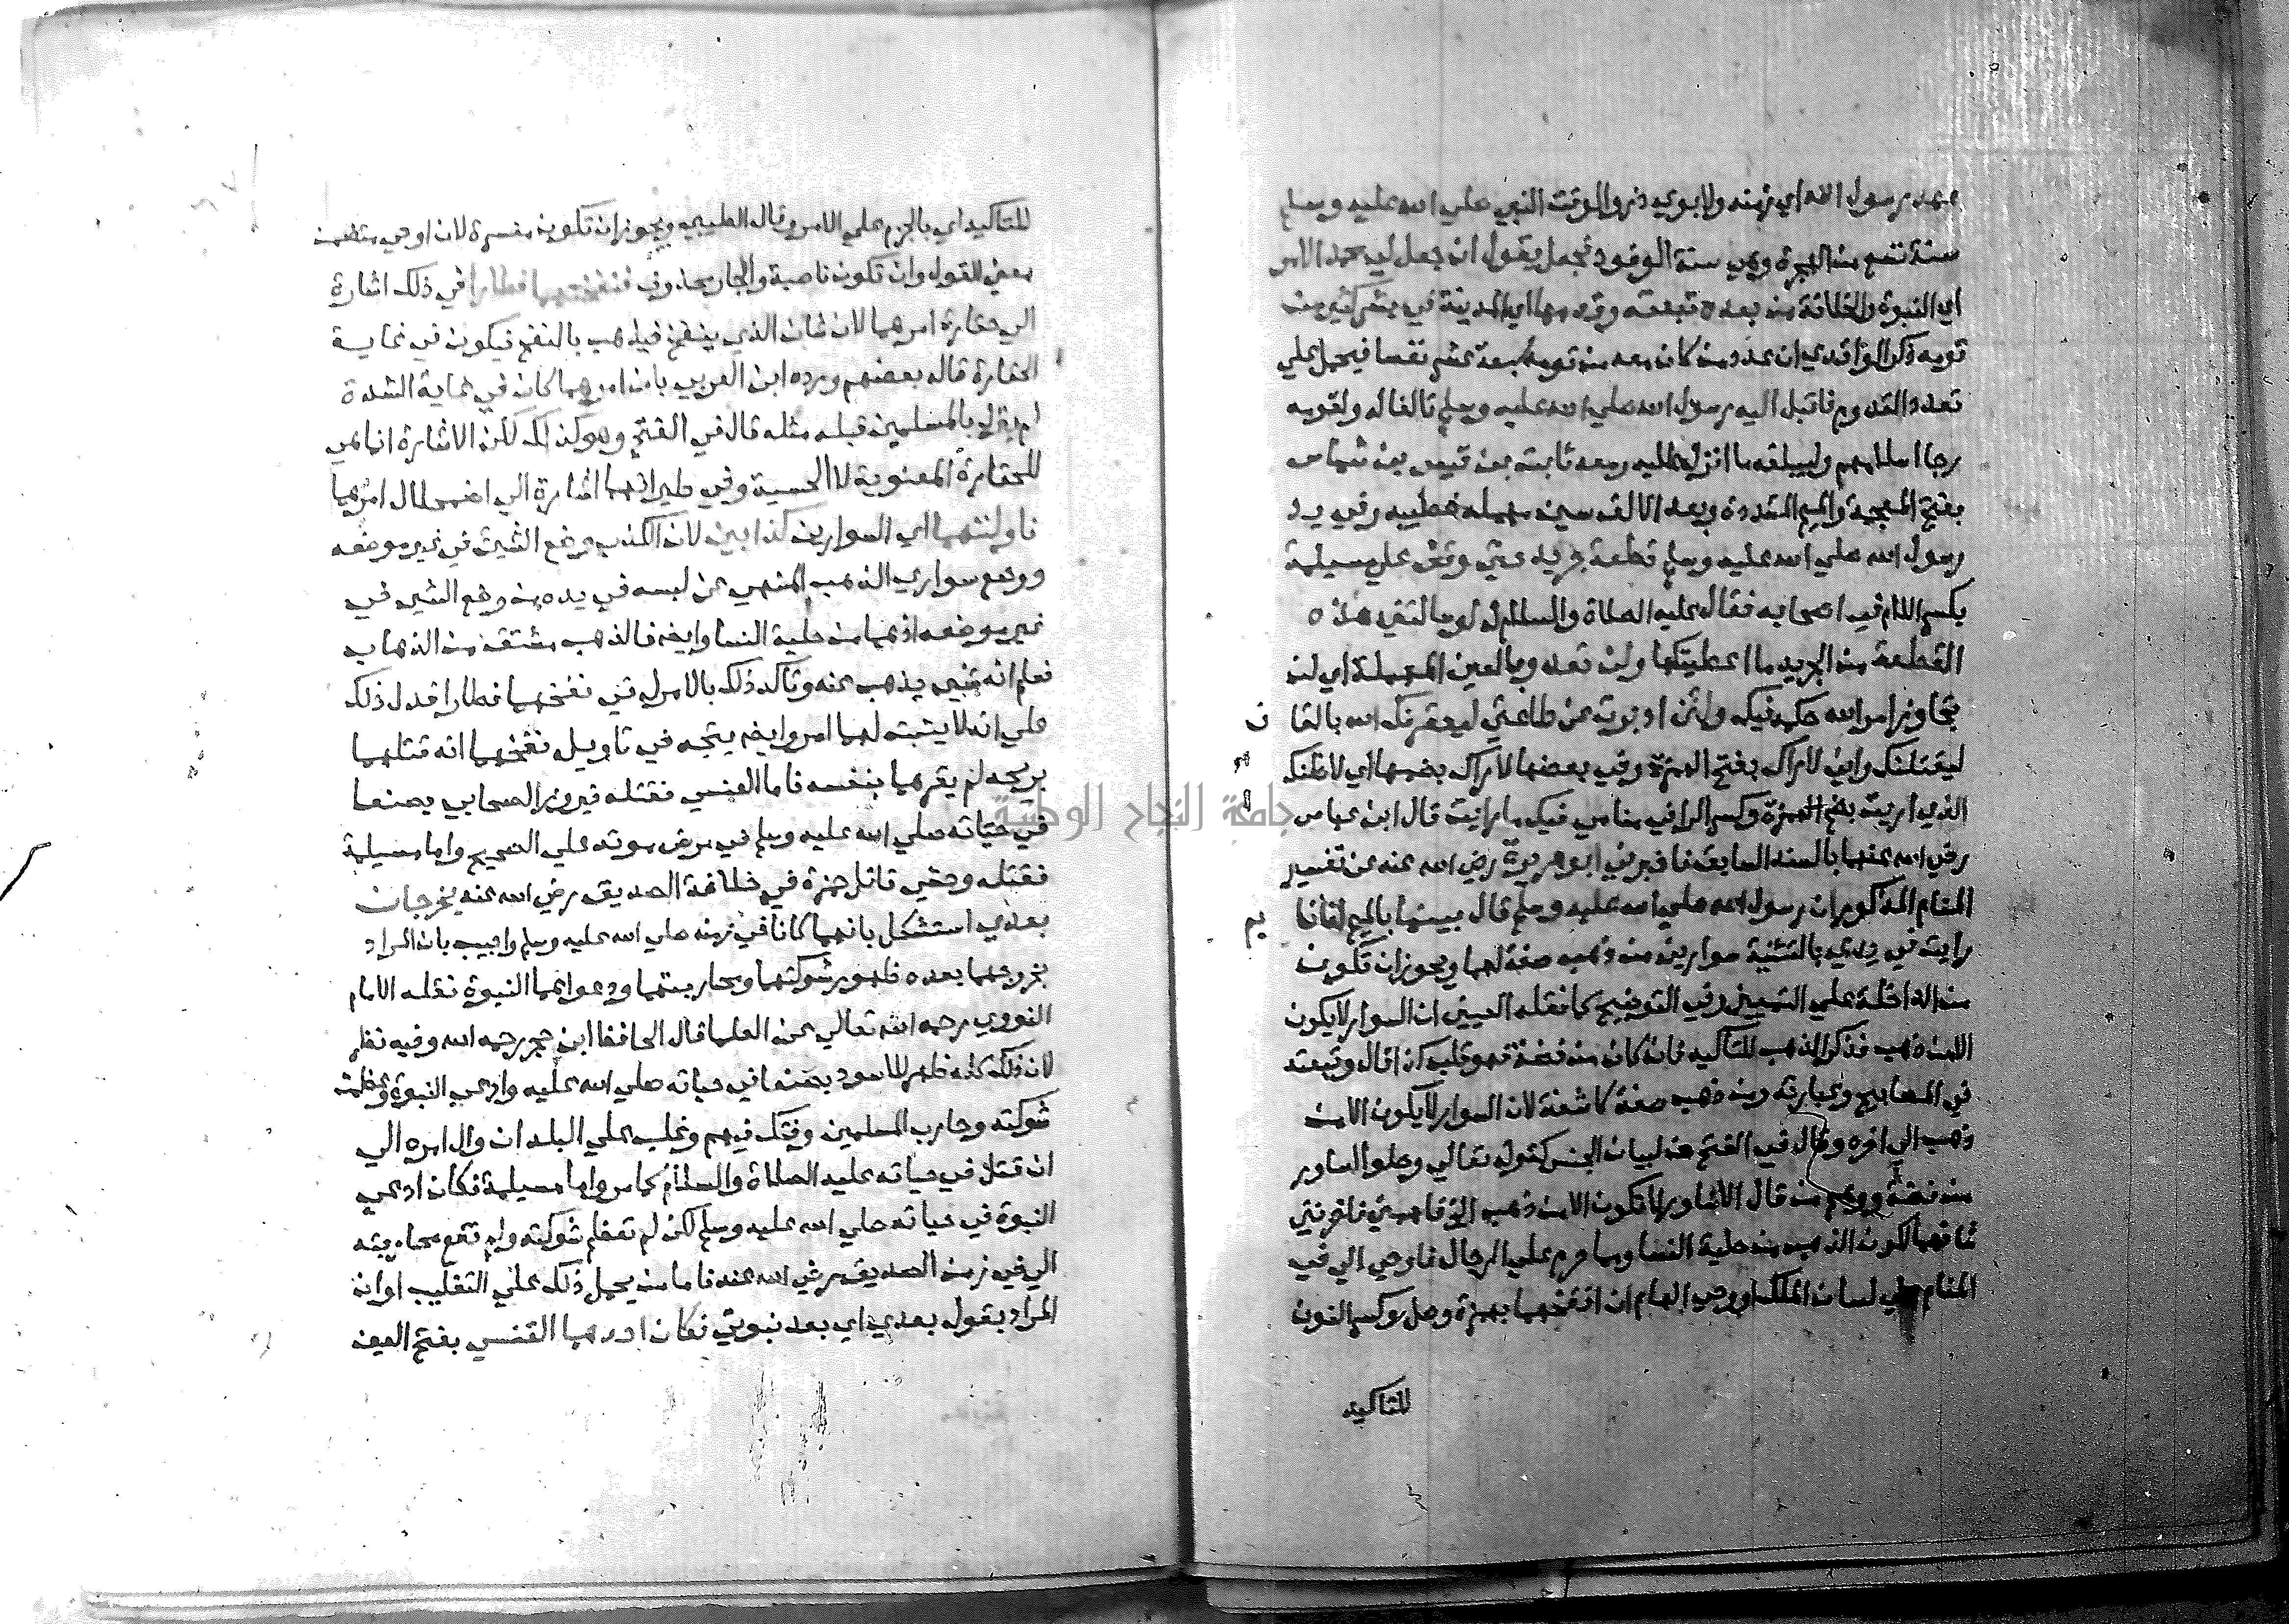 عهد رسول الله اي زمنه ولابوي ذر والوقت النبي صلي الله عليه وسلم
سنة تسع من الهجرة وهي سنة الوفود فجعل يقول ان جعل لي محمد الامر
اي النبوة والخلافة من بعده تبعته وقدمها اي المدينة في بشر كثير من
قومه ذكر الواقدي ان عدد من كان معه من قومه سبعة عشر نفسا فيحمل علي
تعدد القدوم فاقبل اليه رسول الله صلي الله عليه وسلم تالفا له ولقومه
رجا اسلامهم وليبلغه ما انزل اليه ومعه ثابت بن قيس بن شماس
بفتح المعجمة والميم المشددة وبعد الالف سين مهملة خطيبه وفي يد
رسول الله صلي الله عليه وسلم قطعة جريد حتي وقف علي مسيلمة
بكسر اللام في اصحابه فقال عليه الصلاة والسلام له لو سالتني هذه
القطعة من الجريد ما اعطيتكها ولن تعدو بالعين المهملة اي لن
تجاوز امر الله حكمه فيك ولئن ادبرت عن طاعتي ليعقرنك الله بالقا ف
ليقتلنك واني لاراك بفتح الهمزة وفي بعضها لاراك بضمها اي لاظنك
الذي اريت بضم الهمزة وكسر الرا في منامي فيك ما رايت قال ابن عباس
رضي الله عنهما بالسند السابق فاخبرني ابو هريرة رضي الله عنه عن تفسير
المنام المذكور ان رسول الله صلي الله عليه وسلم قال بينما بالميم انا نا يم
رايت في يدي بالتثنية سوارين من ذهب صفة لهما ويجوز ان تكون
من الداخلة علي التمييز وفي التوضيح كما نقله العيني ان السوار لا يكون
الا من ذهب فذكر الذهب للتاكيد فان كان من فضة فهو قلب كذا قال وتبعته
في المصابيح وعبارته ومن ذهب صفة كاشفة لان السوار لا يكون الا من
ذهب الي اخره وقال في الفتح من لبيان الجنس كقوله تعالي وحلوا اساور
من فضة ووهم من قال الاساور لا تكون الا من ذهب الخ فاهمني فاحزنني
شانهما لكون الذهب من حلية النسا ومما حرم علي الرجال فاوحي الي في
المنام علي لسان الملك او وحي الهام ان انفخهما بهمزة وصل وكسر النون
للتاكيد
للتاكيد اي بالجزم علي الامر وقال الطيبي ويجوز ان تكون مفسرة لان اوحي متضمن
معني القول وان تكون ناصبة والجار محذوف فنفختهما فطارا في ذلك اشارة
الي حقارة امرهما لان شان الذي ينفخ فيذهب بالنفخ فيكون في غاية
الحقارة قاله بعضهم ورده ابن العربي بان امرهما كان في غاية الشدة
لم ينزل بالمسلمين قبله مثله قال في الفتح وهو كذلك لكن الاشارة انما هي
للحقارة المعنوية لا الحسية وفي طيرانهما اشارة الي اضمحلال امرهما
فاولتهما اي السوارين كذابين لان الكذب وضع الشي في غير موضعه
ووضع سواري الذهب المنهي عن لبسه في يده من وضع الشي في
غير موضعه اذ هما من حلية النسا وايضا فالذهب مشتق من الذهاب
فعلم انه شي يذهب عنه وتاكد ذلك بالامر له في نفخهما فطارا فدل ذلك
علي انه لا يثبت لهما امر وايضا يتجه في تاويل نفخهما انه قتلهما
بريحه لم يغزهما بنفسه فاما العنسي فقتله فيروز الصحابي بصنعا
في حياته صلي الله عليه وسلم في مرض موته علي الصحيح واما مسيلمة
فقتله وحشي قاتل حمزة في خلافة الصديق رضي الله عنه يخرجان
بعدي استشكل بانهما كانا في زمنه صلي الله عليه وسلم واجيب بان المراد
بخروجهما بعده ظهور شوكتهما ومحاربتهما ودعواهما النبوة نقله الامام
النووي رحمه الله تعالي عن العلما قال الحافظ ابن حجر رحمه الله وفيه نظر
لان ذلك كله ظهر للاسود بصنعا في حياته صلي الله عليه وادعي النبوة وعظمت
شوكته وحارب المسلمين وفتك فيهم وغلب علي البلد ان وال امره الي
ان قتل في حياته عليه الصلاة والسلام كما مر واما مسيلمة فكان ادعي
النبوة في حياته صلي الله عليه وسلم لكن لم تعظم شوكته ولم تقع محاربته
الي في زمن الصديق رضي الله عنه فاما من يحمل ذلك علي التغليب او ان
المراد بقوله بعدي اي بعد نبوتي فكان احدهما العنسي بفتح العين